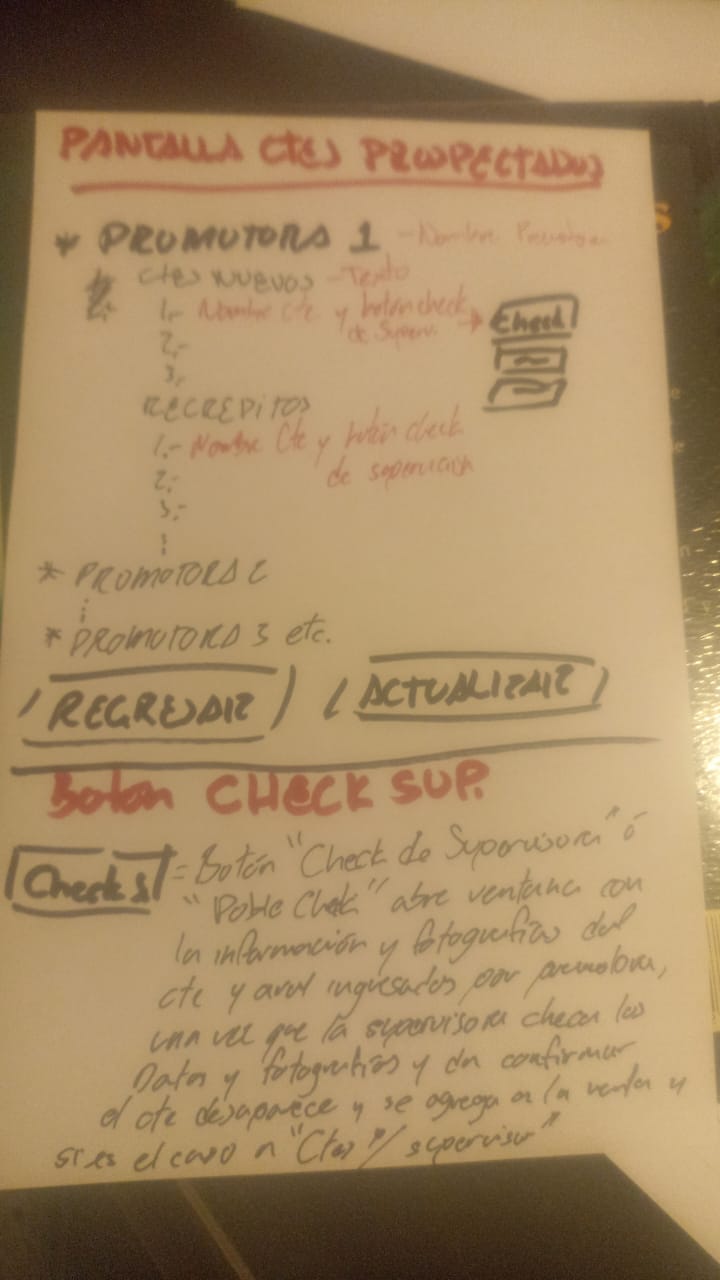 PANTALLA CTES PROSPECTADOS
* PROMOTORA 1 - Nombre Promotora
CTES NUEVOS - Texto
1.- Nombre Cte y botón check
de Superv. → Check
2.-
3.-
RECREDITOS
1.- Nombre Cte y botón check
de supervisión
2.-
3.-
* PROMOTORA 2
* PROMOTORA 3 etc.
REGRESAR ACTUALIZAR
Botón CHECK SUP.
Check S = Botón "Check de Supervisora" ó
"Doble Chek" abre ventana con
la información y fotografias del
cte y aval ingresados por promotora,
una vez que la supervisora checa los
Datos y fotografias y da confirmar
el cte desaparece y se agrega a la venta y
si es el caso a "Ctes / supervisor"